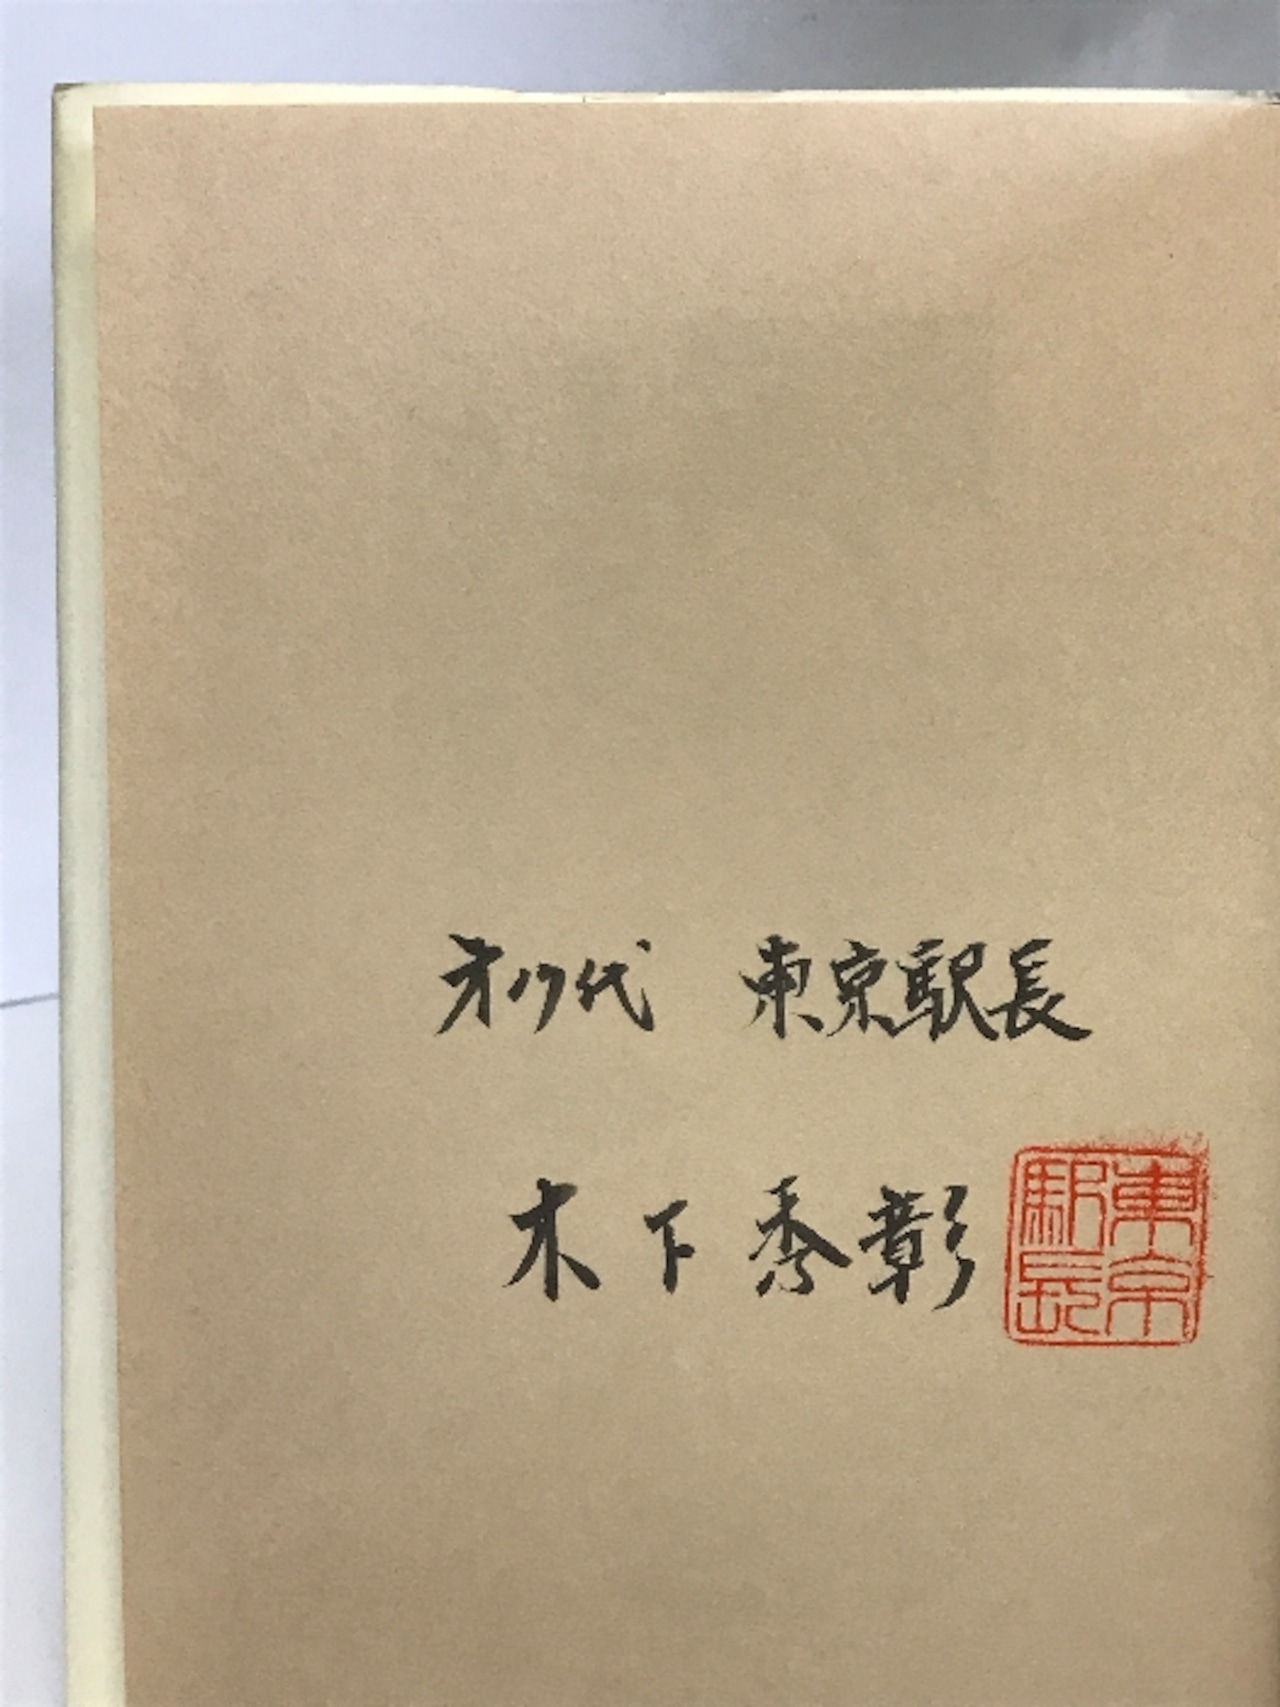 才17代 東京駅長
木下秀彰
東京駅長